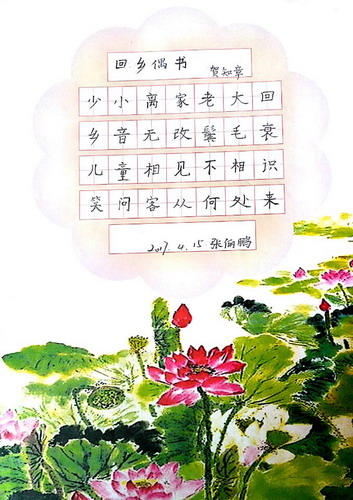 回乡偶书
贺知章
少小离家老大回
乡音无改鬓毛衰
儿童相见不相识
笑问客从何处来
2017.4.15 张俞鹏